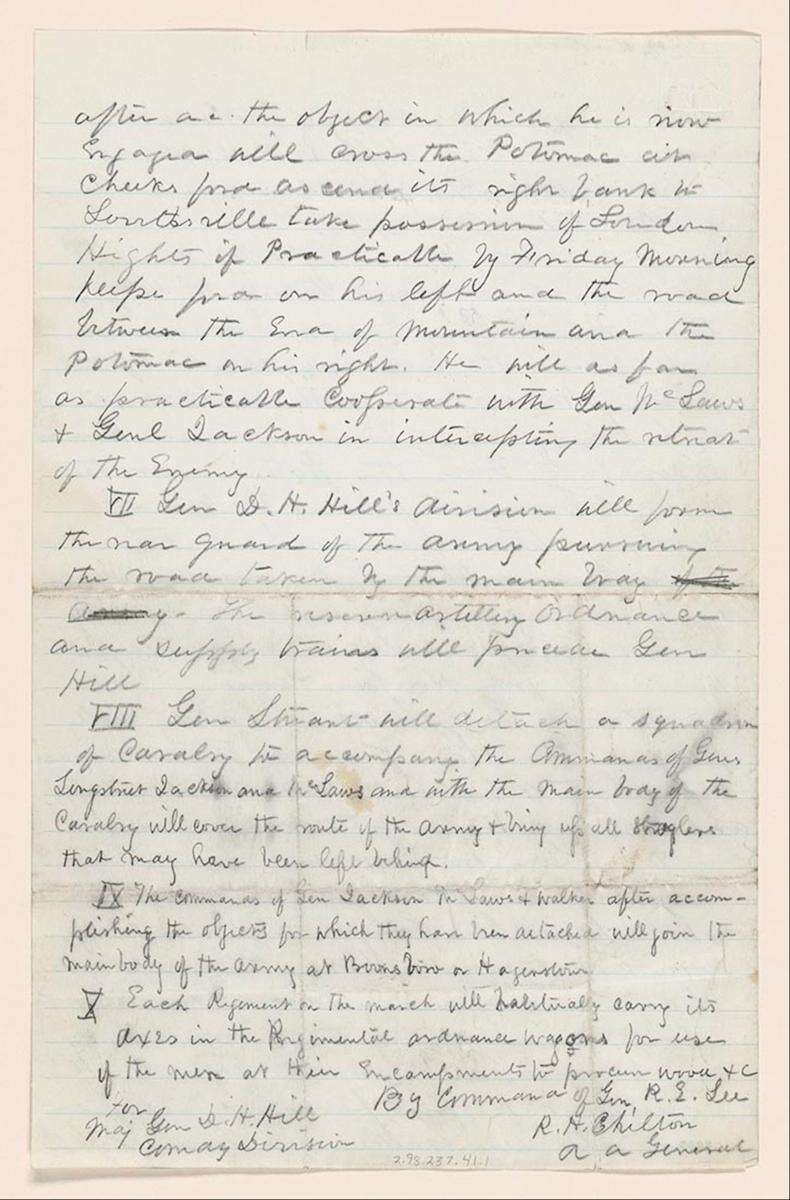 after acc. the object in which he is now
Engaged will cross the Potomac at
Cheeks ford ascend its right bank to
Lovettsville take possession of Loudon
Hights if Practicable by Friday Morning
Keeps ford on his left and the road
between the End of mountain and the
Potomac on his right. He will as far
as practicable Cooperate with Gen McLaws
& Genl Jackson in intercepting the retreat
of the Enemy
VII Gen D. H. Hill's division will form
the rear guard of the army pursuing
the road taken by the main body of the
Army. The reserve artillery Ordnance
and supply trains will precede Gen
Hill
VIII Gen Stuart will detach a squadron
of Cavalry to accompany the Commands of Gens
Longstreet Jackson and McLaws and with the main body of the
Cavalry will cover the route of the army & bring up all straglers
that may have been left behind.
IX The commands of Gen Jackson McLaws & Walker after accom-
plishing the objects for which they have been detached will join the
main body of the army at Boonsboro or Hagerstown
X Each Regiment on the march will habitually carry its
axes in the Regimental ordnance wagons for use
of the men at their Encampments to procure wood &c
By Command of Gen. R. E. Lee
For
Maj Gen D. H. Hill
R. H. Chilton
Comdg Division
A A General
2.98.237.41.1